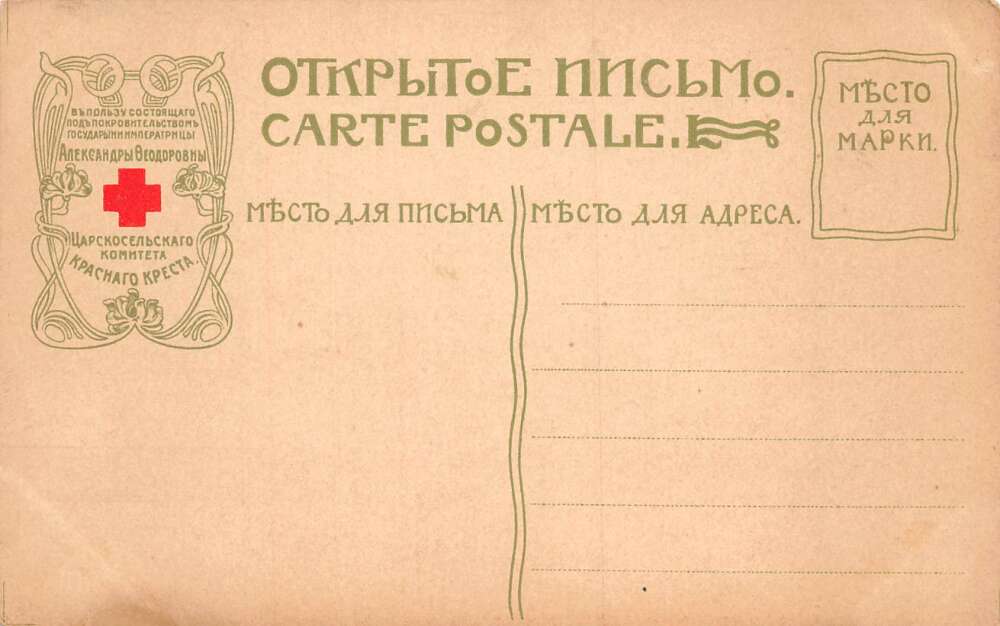 ВЪ ПОЛЬЗУ СОСТОЯЩАГО
ПОДЪ ПОКРОВИТЕЛЬСТВОМЪ
ГОСУДАРЫНИ ИМПЕРАТРИЦЫ
АЛЕКСАНДРЫ ѲЕОДОРОВНЫ
ЦАРСКОСЕЛЬСКАГО
КОМИТЕТА
КРАСНАГО КРЕСТА.
ОТКРЫТОЕ ПИСЬМО.
CARTE POSTALE.
МѢСТО ДЛЯ ПИСЬМА
МѢСТО ДЛЯ АДРЕСА.
МѢСТО
ДЛЯ
МАРКИ.